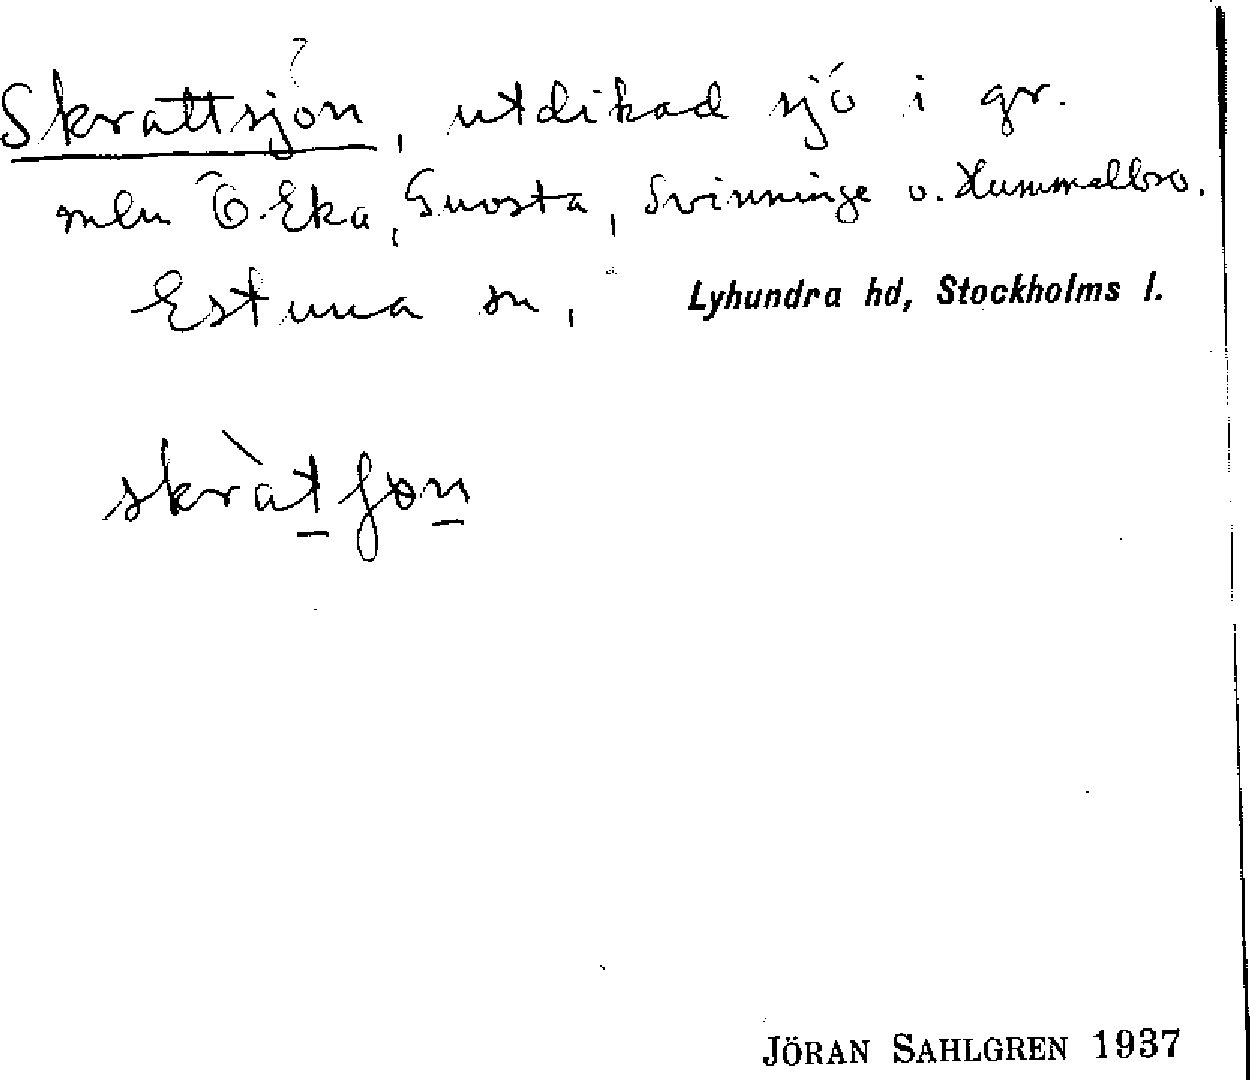 ?
Skrattsjön, utdikad sjö i gr.
mln Ö. Eka, Snosta, Svinninge o. Hummelbro.
Estuna sn, Lyhundra hd, Stockholms l.
skràt ʃɵn
JÖRAN SAHLGREN 1937